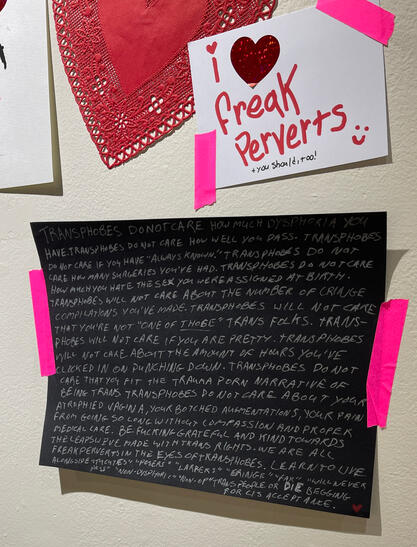 i ♥
freak
Perverts
+ you should, too! :)
TRANSPHOBES DO NOT CARE HOW MUCH DYSPHORIA YOU
HAVE. TRANSPHOBES DO NOT CARE HOW WELL YOU PASS. TRANSPHOBES
DO NOT CARE IF YOU HAVE "ALWAYS KNOWN." TRANSPHOBES DO NOT
CARE HOW MANY SURGERIES YOU'VE HAD. TRANSPHOBES DO NOT CARE
HOW MUCH YOU HATE THE SEX YOU WERE ASSIGNED AT BIRTH.
TRANSPHOBES WILL NOT CARE ABOUT THE NUMBER OF CRINGE
COMPILATIONS YOU'VE MADE. TRANSPHOBES WILL NOT CARE
THAT YOU'RE NOT "ONE OF THOSE" TRANS FOLKS. TRANS-
PHOBES WILL NOT CARE IF YOU ARE PRETTY. TRANSPHOBES
WILL NOT CARE ABOUT THE AMOUNT OF HOURS YOU'VE
CLICKED IN ON PUNCHING DOWN. TRANSPHOBES DO NOT
CARE THAT YOU FIT THE TRAUMA PORN NARRATIVE OF
BEING TRANS. TRANSPHOBES DO NOT CARE ABOUT YOUR
ATROPHIED VAGINA, YOUR BOTCHED AUGMENTATIONS, YOUR PAIN
FROM GOING SO LONG WITHOUT COMPASSION AND PROPER
MEDICAL CARE. BE FUCKING GRATEFUL AND KIND TOWARDS
THE LEAPS WE'VE MADE WITH TRANS RIGHTS. WE ARE ALL
FREAK PERVERTS IN THE EYES OF TRANSPHOBES. LEARN TO LIVE
ALONGSIDE "POSERS" "LARPERS" "CRINGE" "FAK" "WILL NEVER
PASS" "NON-DYSPHORIC" "NON-OP" TRANS PEOPLE OR DIE BEGGING
FOR CIS ACCEPTANCE.